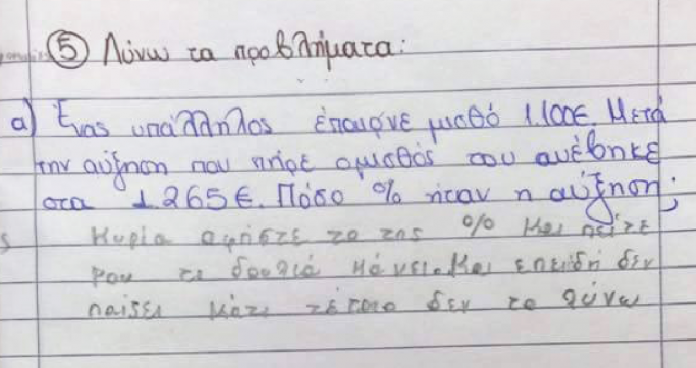 ⑤ Λύνω τα προβλήματα:
α) Ένας υπάλληλος έπαιρνε μισθό 1.100€. Μετά
την αύξηση που πήρε ο μισθός του ανέβηκε
στα 1.265€. Πόσο % ήταν η αύξηση;
Κυρία αφήστε το της % και πείτε
μου τι δουλιά κάνει. Και επειδή δεν
παίζει κάτι τέτοιο δεν το λύνω